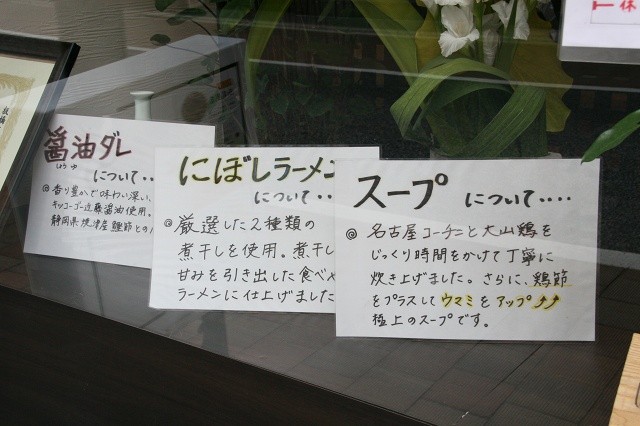 醤油ダレ
しょうゆ
について‥
◎香り豊かで味わい深い、
キッコーゴー近藤醤油使用。
静岡県焼津産 鰹節との
にぼしラーメン
について‥
◎厳選した2種類の
煮干しを使用。煮干し
甘みを引き出した食べや
ラーメンに仕上げました
スープ について‥‥
◎名古屋コーチンと大山鶏を
じっくり時間をかけて丁寧に
炊き上げました。さらに、鶏節
をプラスしてウマミをアップ⤴⤴
極上のスープです。
休